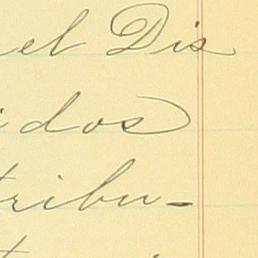 el Dis
idos
tribu-